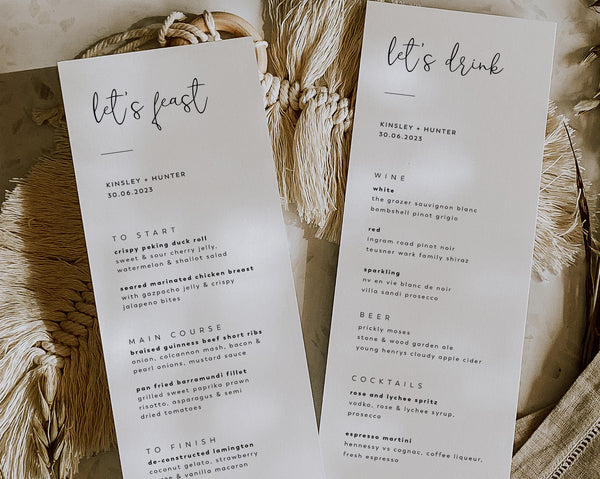 let's feast
KINSLEY + HUNTER
30.06.2023
TO START
crispy peking duck roll
sweet & sour cherry jelly,
watermelon & shallot salad
soared marinated chicken breast
with gazpacho jelly & crispy
jalapeno bites
MAIN COURSE
braised guinness beef short ribs
onion, colcannon mash, bacon &
pearl onions, mustard sauce
pan fried barramundi fillet
grilled sweet paprika prawn
risotto, asparagus & semi
dried tomatoes
TO FINISH
de-constructed lamington
coconut gelato, strawberry
& vanilla macaron
let's drink
KINSLEY + HUNTER
30.06.2023
WINE
white
the grazer sauvignon blanc
bombshell pinot grigio
red
ingram road pinot noir
teusner wark family shiraz
sparkling
nv en vie blanc de noir
villa sandi prosecco
BEER
prickly moses
stone & wood garden ale
young henrys cloudy apple cider
COCKTAILS
rose and lychee spritz
vodko, rose & lychee syrup,
prosecco
espresso martini
hennessy vs cognac, coffee liqueur,
fresh espresso